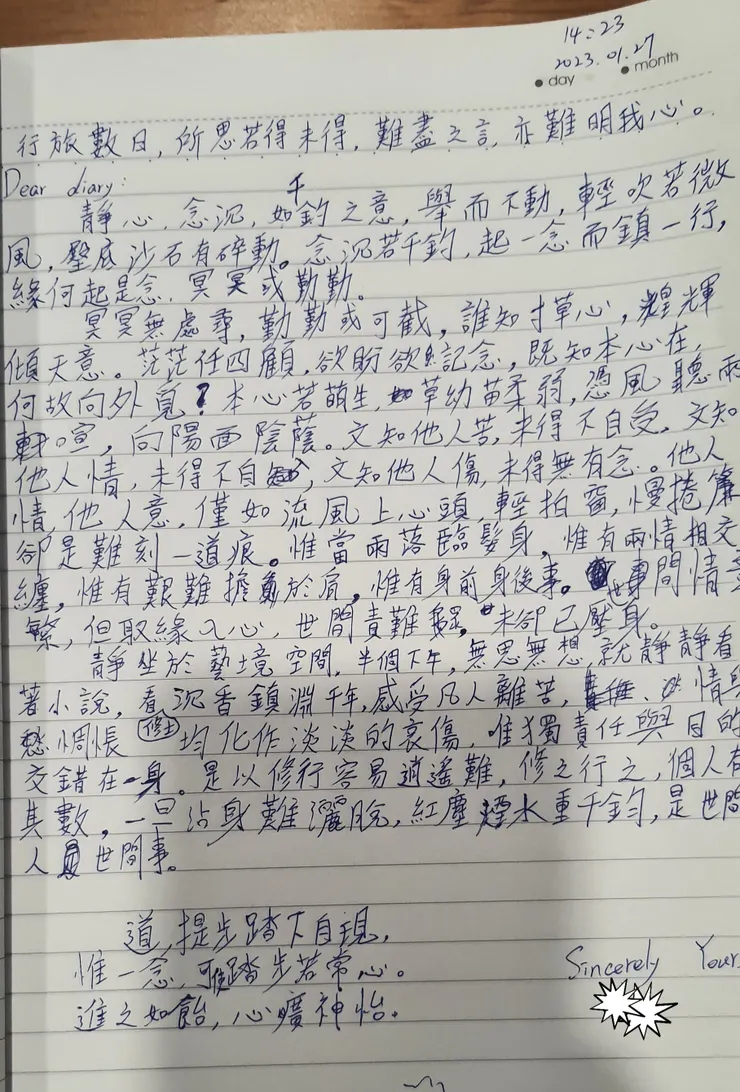 14:23
2023.01.27
day month
行旅數日，所思若得未得，難盡之言，亦難明我心。
Dear diary:
靜心，念沉，如千鈞之意，舉而不動，輕吹若微
風，壑底沙石有碎動。念沉若千鈞，起一念而鎮一行，
緣何起是念，冥冥或勤勤。
冥冥無處尋，勤勤或可截，誰知寸草心，輝
傾天意。茫茫任四顧，欲盼欲記念，既知本心在，
何故向外覓？本心若萌生，草幼苗柔弱，憑風聽雨
喧，向陽面陰蔭。文知他人苦，未得不自受，文知
他人情，未得不自，文知他人傷，未得無有念。他人
情，他人意，僅如流風上心頭，輕拍窗，慢捲簾
卻是難刻一道痕。惟當雨落臨髮身，惟有兩情相交
纏，惟有艱難擔於肩，惟有身前身後事。世間情意
繁，但取緣入心，世間責難，未卻已壓身。
靜坐於藝境空間，半個下午，無思無想，就靜靜看
著小說，看沉香鎮淵千年，感受凡人離苦，情與
愁惆悵 修士 均化作淡淡的哀傷，唯獨責任與目的
交錯在一身。是以修行容易逍遙難，修之行之，個人有
其數，一旦沾身難灑脫，紅塵煙水重千鈞，是世間
人 世間事。
道，提步踏下自現，
惟一念，踏步若常心。
進之如飴，心曠神怡。
Sincerely Yours